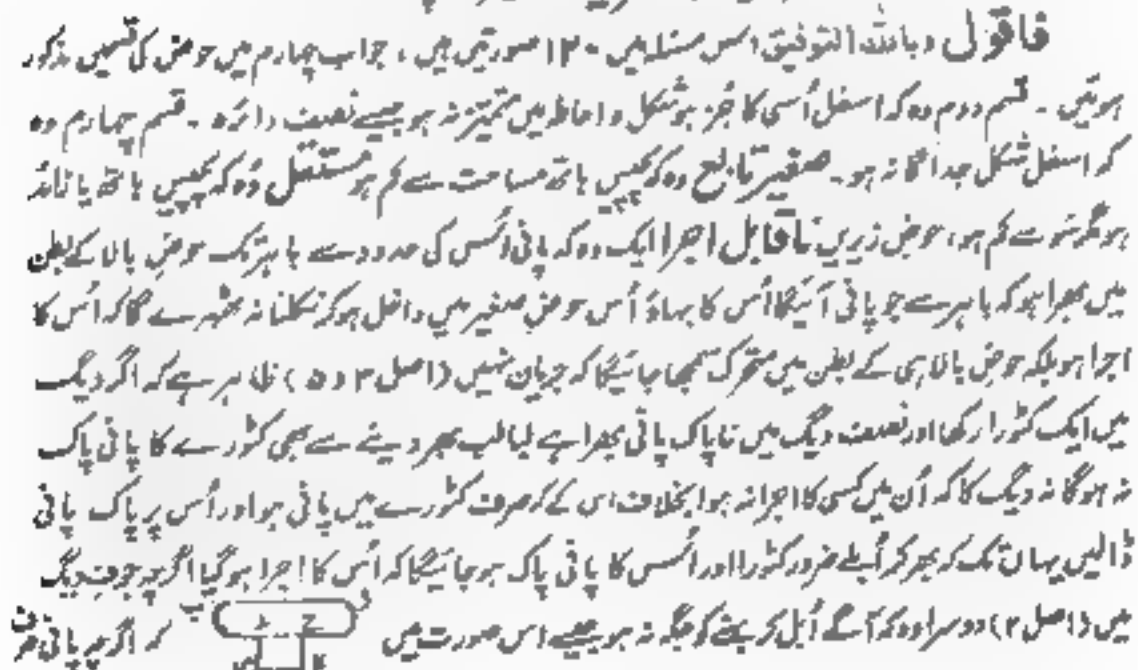 فاقول وباللہ التوفیق اس مسئلہ میں ۱۲۰ صورتیں ہیں، جواب چہارم میں حوض کی قسمیں مذکور
ہوئیں۔ قسم دوم وہ کہ اسفل اُسی کا جُز ہو شکل و احاطہ میں متمیز نہ ہو جیسے نصف دائرہ۔ قسم چہارم وہ
کہ اسفل شکل جداگانہ ہو۔ صغیر تابع وہ کہ پچیس ہاتھ مساحت سے کم ہو مستقل وُہ کہ پچیس ہاتھ یا زائد
ہو مگر سَو سے کم ہو، حوض زیریں ناقابل اجرا ایک وہ کہ پانی اُس کی حدود سے باہر تک حوضِ بالا کے بطن
میں بھرا ہو کہ باہر سے جو پانی آئیگا اُس کا بہاؤ اُس حوضِ صغیر میں داخل ہو کر نکلنا نہ ٹھہرے گا کہ اُس کا
اجرا ہو بلکہ حوضِ بالا ہی کے بطن میں متحرک سمجھا جائیگا کہ جریان نہیں (اصل ۳ و ۵) ظاہر ہے کہ اگر دیگ
میں ایک کٹورا رکھا اور نصف دیگ میں ناپاک پانی بھرا ہے لبالب بھر دینے سے بھی کٹورے کا پانی پاک
نہ ہوگا نہ دیگ کا کہ اُن میں کسی کا اجرا نہ ہوا بخلاف اس کے کہ صرف کٹورے میں پانی ہو اور اُس پر پاک پانی
ڈالیں یہاں تک کہ بھر کر اُبلے ضرور کٹورا اور اُسس کا پانی پاک ہوجائیگا کہ اُس کا اجرا ہوگیا اگرچہ جوفِ دیگ
میں (اصل ۲) دوسرا وہ کہ آگے اُبل کر بہنے کو جگہ نہ ہو جیسے اس صورت میں کہ اگرچہ پانی صرف